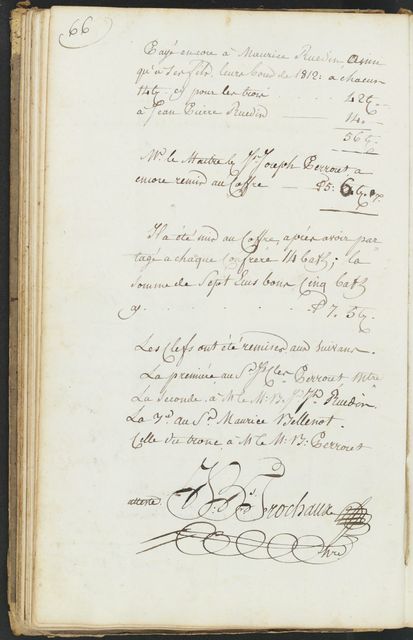 66
Payé encore à Maurice Ruedin ainsi
qu'à son fils, leurs bons de 1812: a chacun
14 g. cy pour les trois 42 g.
à Jean Pierre Ruedin 14.
56 g.
Mr. le Maitre le Sr. Joseph Perrout a
encore remis au Coffre
Il a été mis au Coffre, après avoir par
tagé a chaque confrère 14 batz; la
somme de Sept Ecus bons Cinq batz
cy. 7. 5 g.
Les Clefs ont été remises aux suivans.
La première au Sr. Perrout, Mtre
La seconde à Mr le M: B: Ruedin.
La 3e. au Sr. Maurice Bellenot.
Celle du tronc à Mr le M: B: Perrout
atteste Frochaux